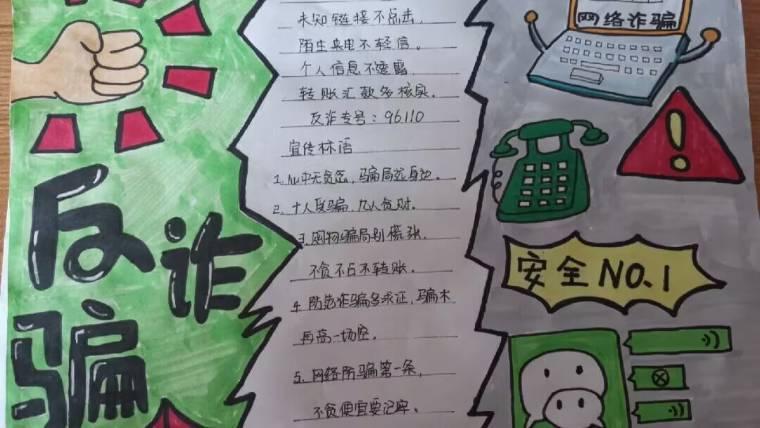 反诈骗
未知链接不点击,
陌生来电不轻信。
个人信息不透露,
转账汇款多核实。
反诈专号:96110
宣传标语
1.心中无贪念,骗局远身边。
2.十人受骗,九人贪财。
3.网物骗局别慌张,
不贪不占不转账。
4.防范诈骗多求证,骗术
再高一场空。
5.网络防骗第一条,
不贪便宜要记牢。
网络诈骗
安全NO.1